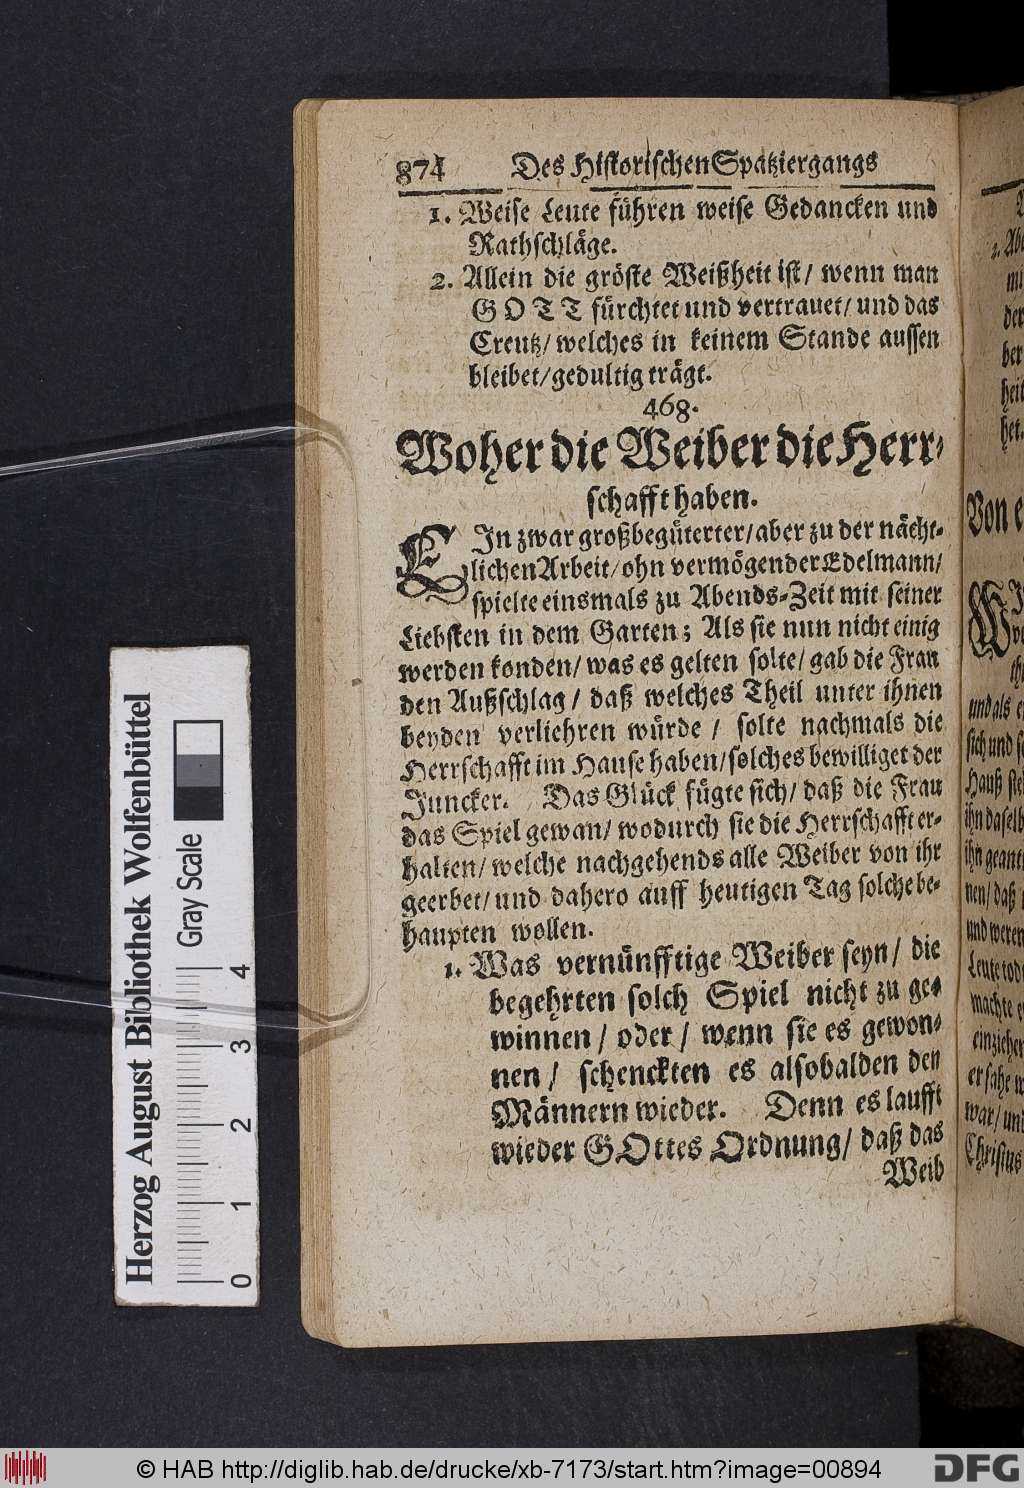 874 Des Historischen Spatziergangs
1. Weise Leute führen weise Gedancken und
Rathschläge.
2. Allein die gröste Weißheit ist/ wenn man
GOTT fürchtet und vertrauet/ und das
Creutz/ welches in keinem Stande aussen
bleibet/ gedultig trägt.
468.
Woher die Weiber die Herr-
schafft haben.
EIn zwar großbegüterter/ aber zu der nächt-
lichen Arbeit/ ohn vermögender Edelmann/
spielte einsmals zu Abends-Zeit mit seiner
Liebsten in dem Garten; Als sie nun nicht einig
werden konden/ was es gelten solte/ gab die Frau
den Außschlag/ daß welches Theil unter ihnen
beyden verliehren würde/ solte nachmals die
Herrschafft im Hause haben/ solches bewilliget der
Juncker. Das Glück fügte sich/ daß die Frau
das Spiel gewan/ wodurch sie die Herrschafft er-
halten/ welche nachgehends alle Weiber von ihr
geerbet/ und dahero auff heutigen Tag solche be-
haupten wollen.
1. Was vernünfftige Weiber seyn/ die
begehrten solch Spiel nicht zu ge-
winnen/ oder/ wenn sie es gewon-
nen/ schenckten es alsobalden den
Männern wieder. Denn es laufft
wieder GOttes Ordnung/ daß das
Weib
2. Abe
mi
der
ber
heit
het.
Von e
und als e
sich und s
Hauß ste
ihn daselb
ihn geant
nen/ daß
und weren
Leute tod
machte e
einziehen
er sahe w
war/ und
Christus
Herzog August Bibliothek Wolfenbüttel
Gray Scale
0 1 2 3 4
© HAB http://diglib.hab.de/drucke/xb-7173/start.htm?image=00894
DFG